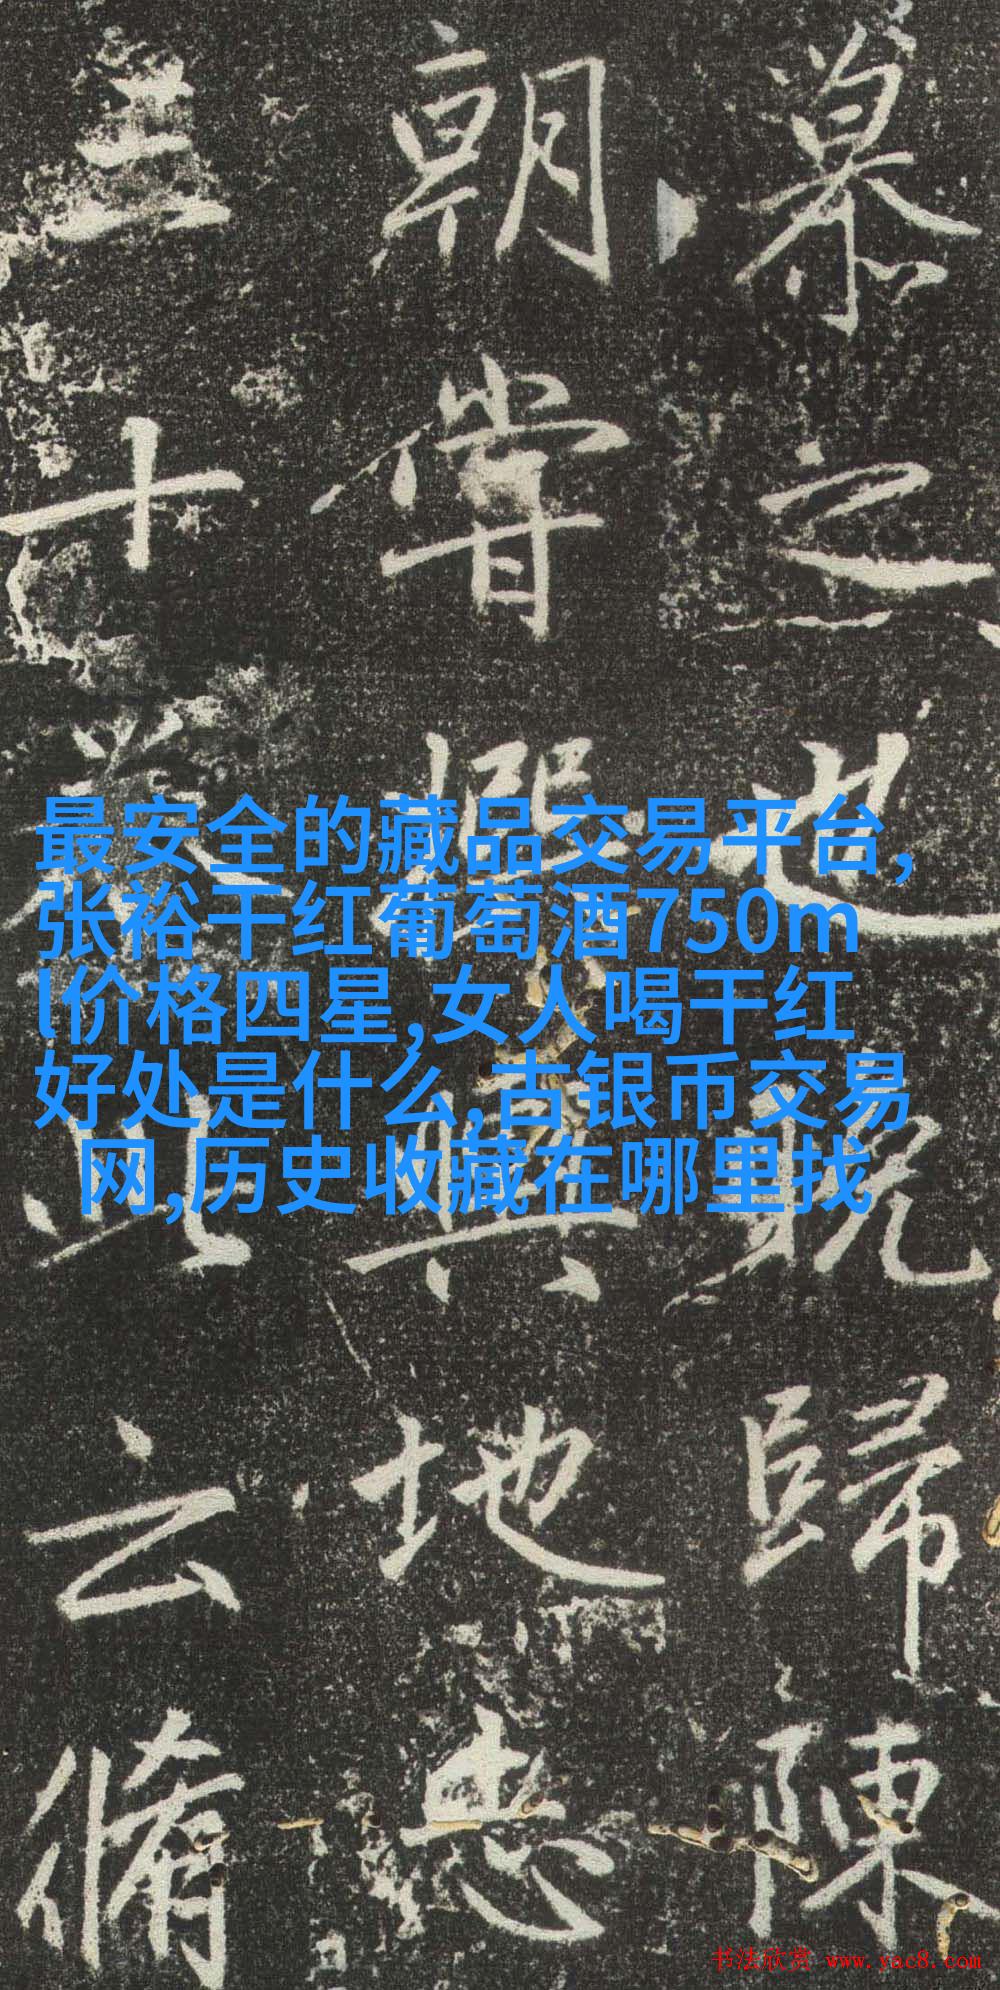 之也既歸陳
朝嘗撰輿地志
三十卷此云脩
最安全的藏品交易平台,
张裕干红葡萄酒750m
l价格四星,女人喝干红
好处是什么,古银币交易
网,历史收藏在哪里找
书法欣赏 www.yac8.com